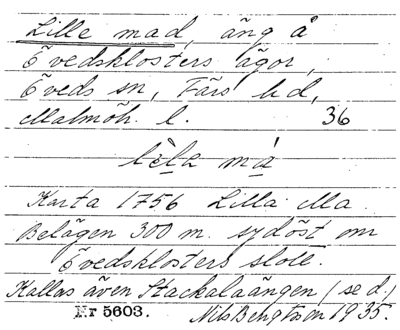 Lille mad, äng å
Övedsklosters ägor,
Öveds sn, Färs hd,
Malmöh. l. 36
lèla má
Karta 1756 Lilla Ma
Belägen 300 m. sydöst om
Övedsklosters slott.
Kallas även Stackalaängen (se d.)
Nr 5603. Nils Bengtsson 1935.